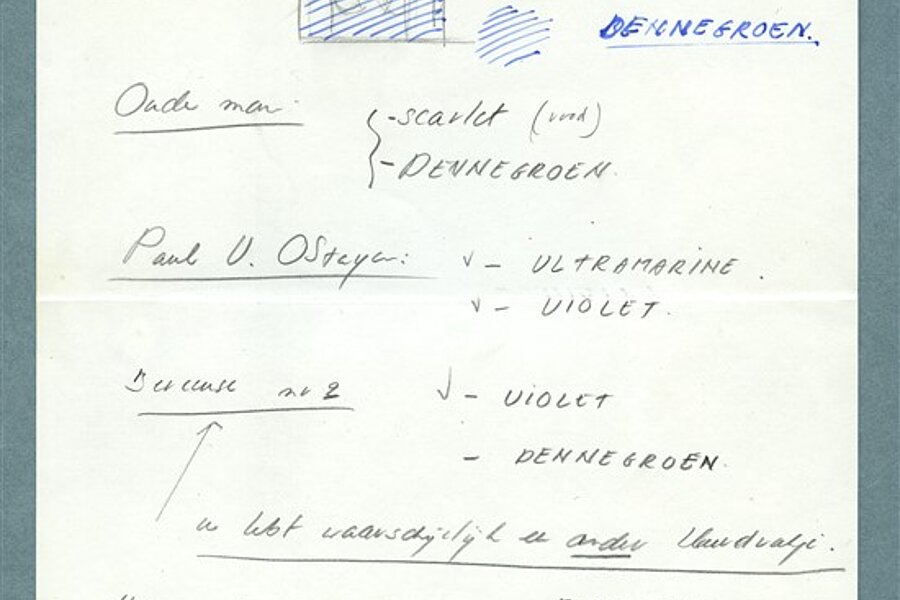 DENNEGROEN.
Oude man:
- scarlet (rood)
- DENNEGROEN.
Paul V. OStayen:
v - ULTRAMARINE.
v - VIOLET.
Berceuse nr 2
v - VIOLET
- DENNEGROEN.
u hebt waarschijnlijk een ander